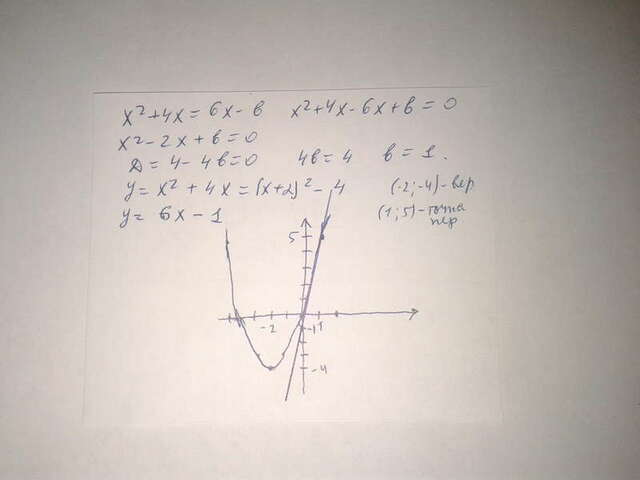 x²+4x = 6x - b   x²+4x-6x+b = 0
x²-2x+b=0
D = 4-4b=0   4b = 4   b = 1.
y = x² + 4x = (x+2)² - 4   (-2;-4) - вер
y = 6x - 1   (1; 5) - точка
пер
5
-2
-1
1
-4